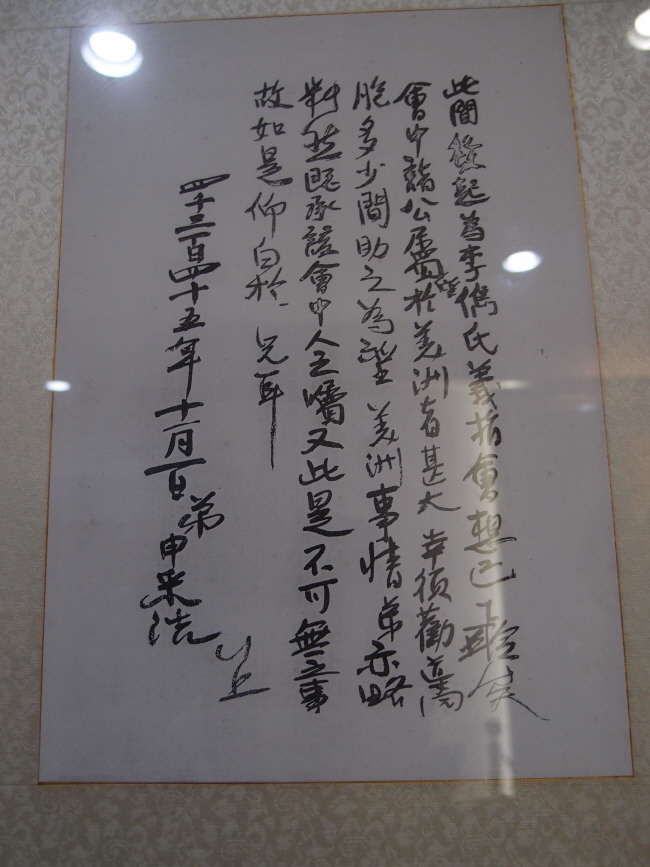 此間發起為李儁氏義捐會想已 矣
會中諸公屬望於美洲者甚大幸須勸 同
胞多少間助之為望美洲事情弟亦略
料然既承該會中人之囑又此是不可無之事
故如是仰白於 兄耳
四千二百四十五年十一月一日弟申采浩 上